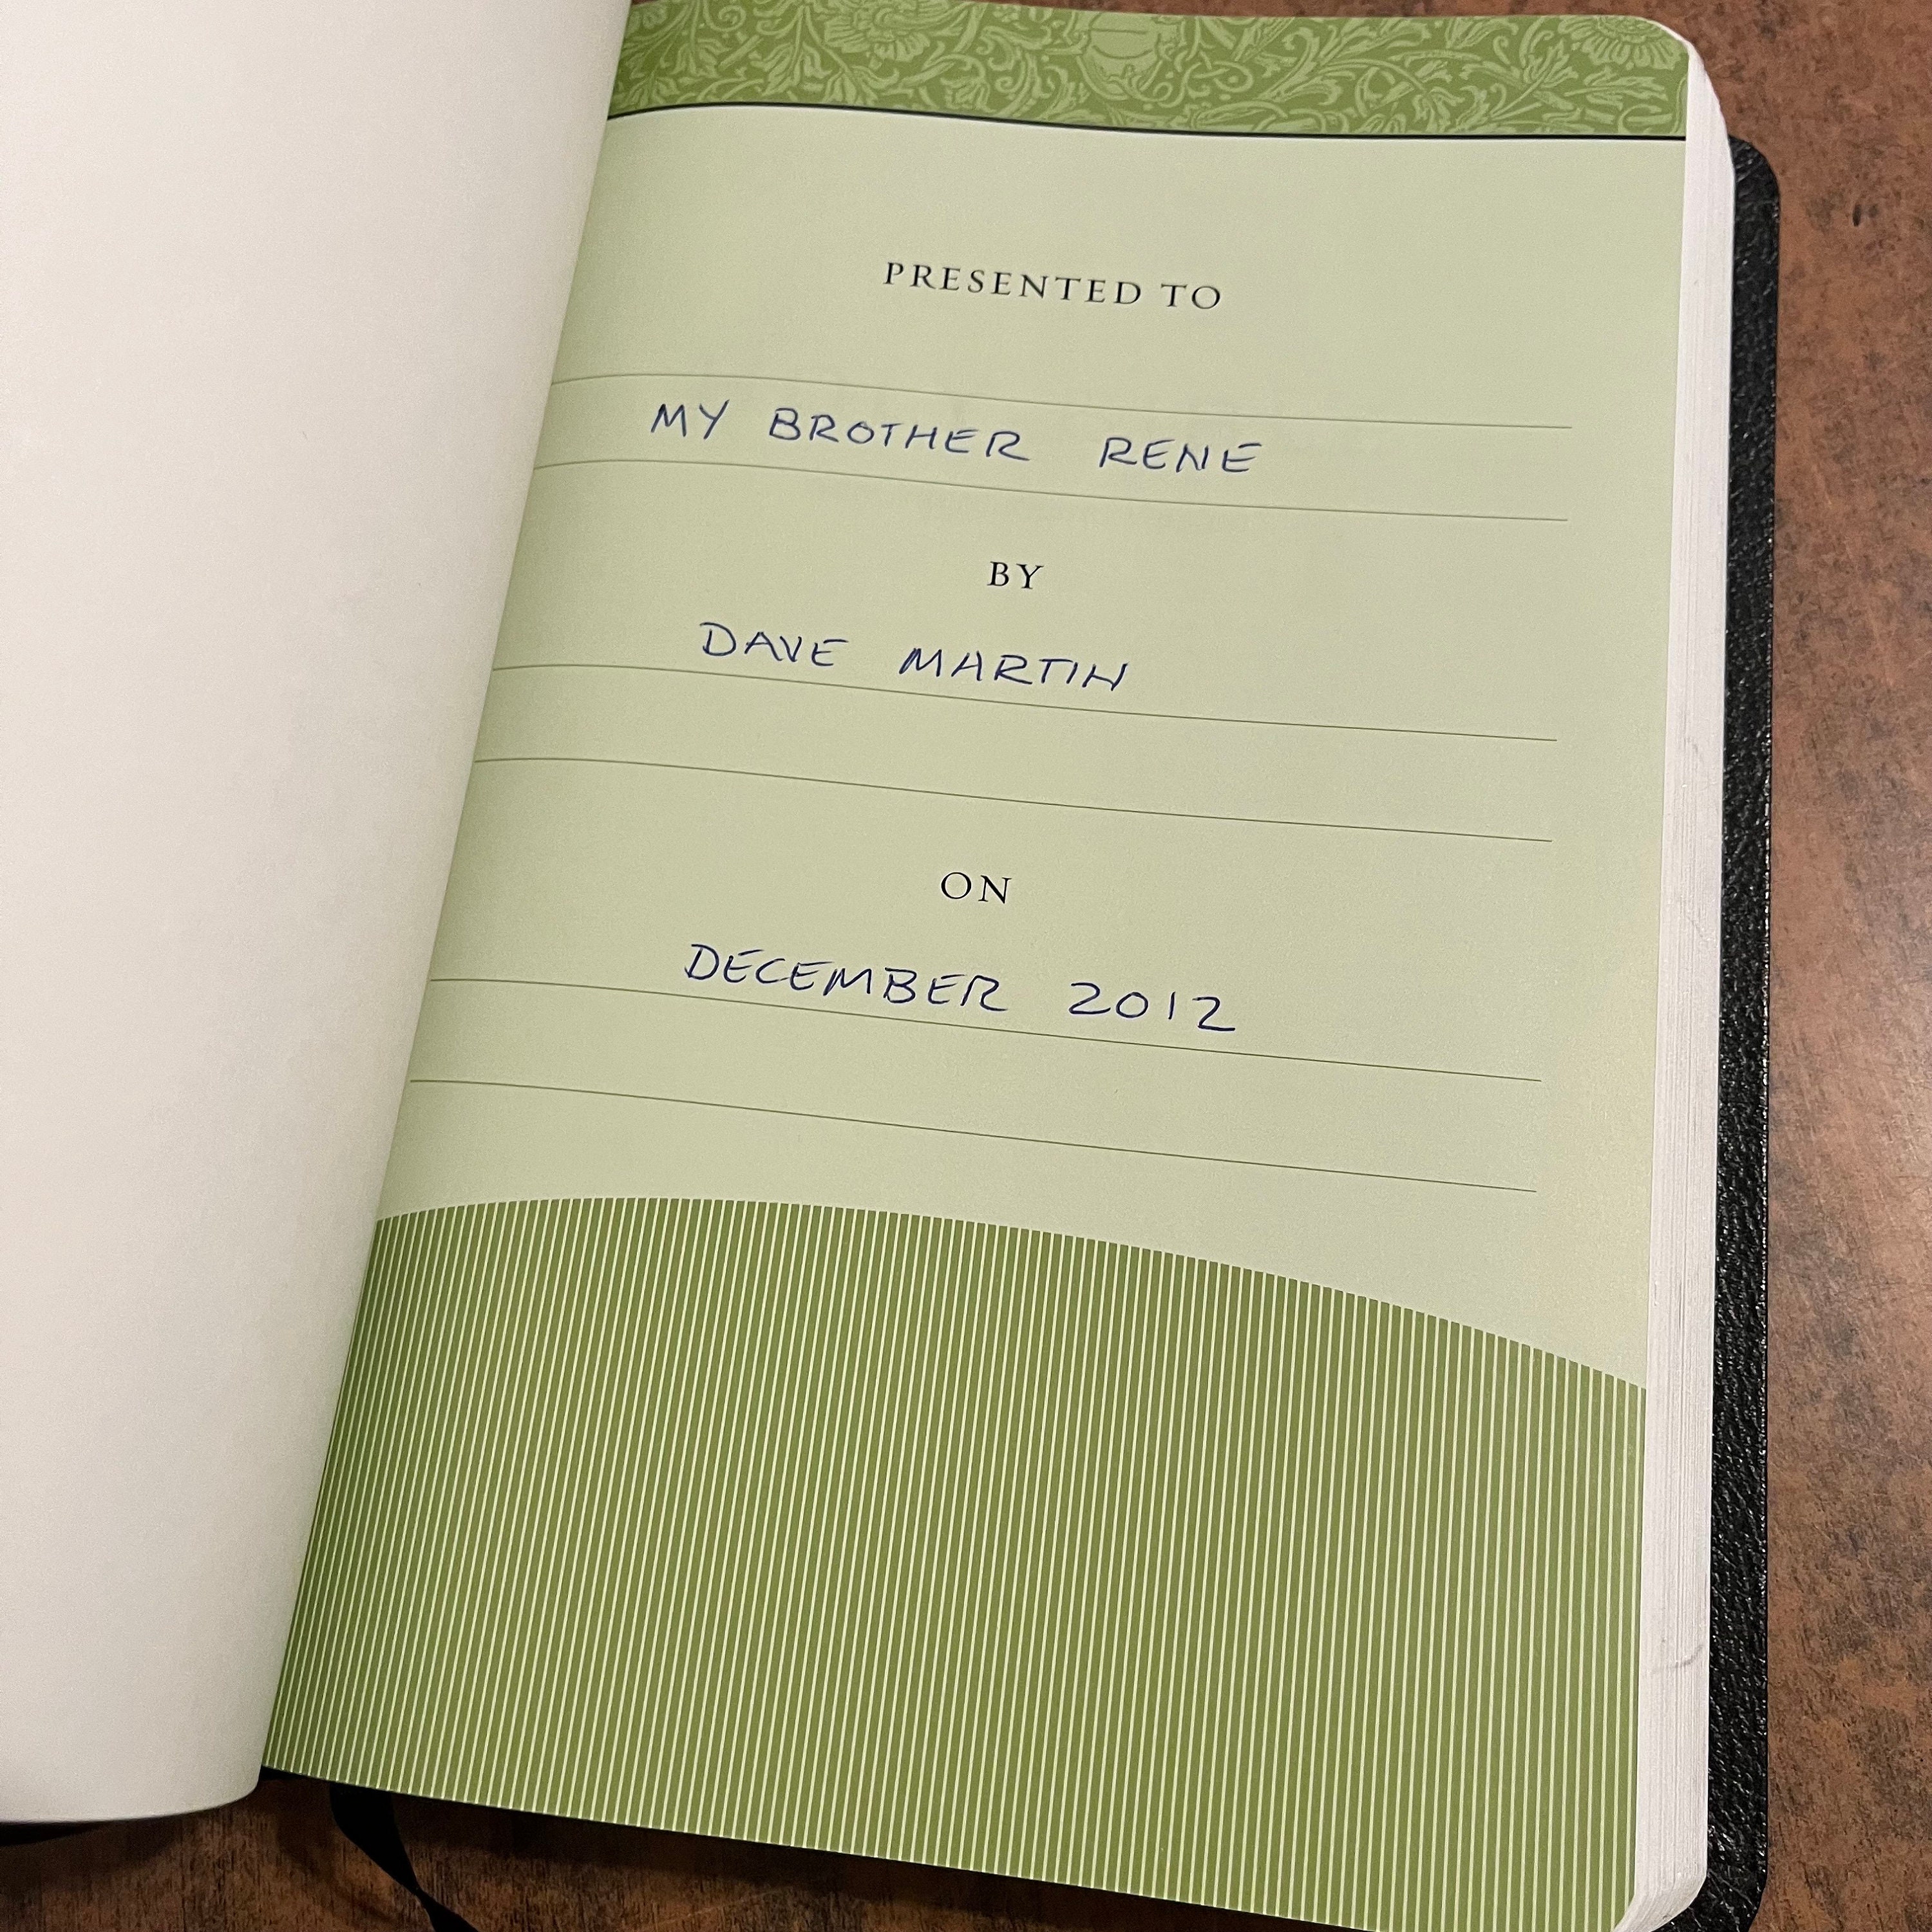 PRESENTED TO
MY BROTHER RENE
BY
DAVE MARTIN
ON
DECEMBER 2012